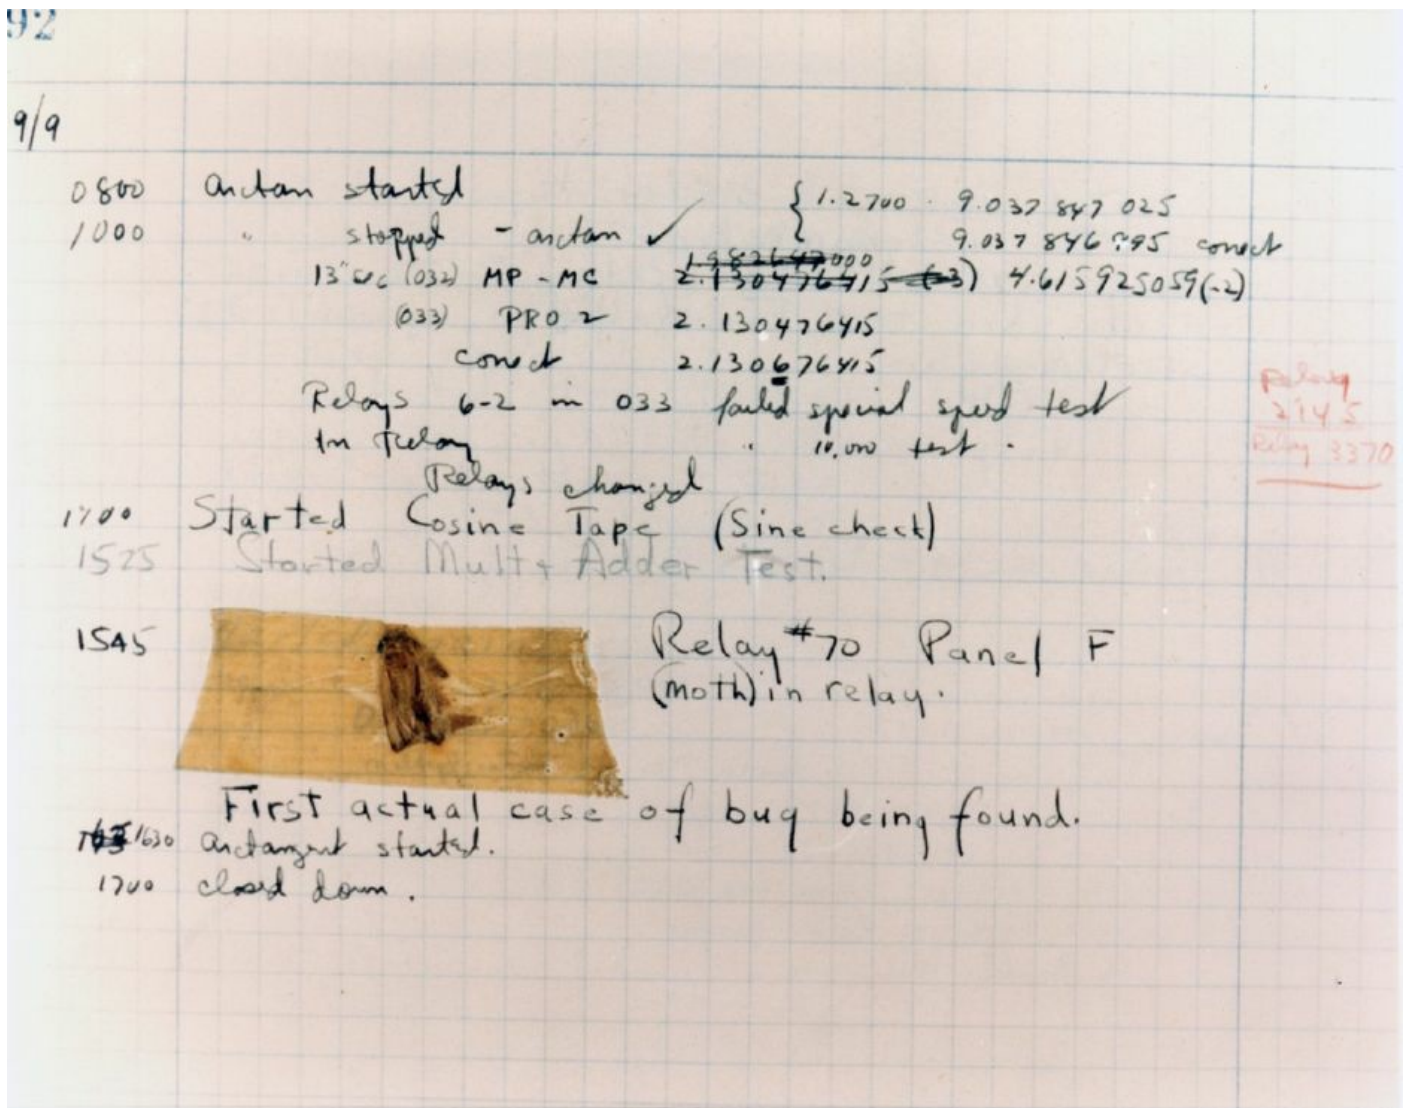 92
9/9
0800 arctan started { 1.2700 9.037 847 025
1000 " stopped - arctan ✓ 9.037 846 995 correct
13" sec (032) MP - MC 1.982647000 2.130476415 (-3) 4.615925059(-2)
(033) PRO 2 2.130476415
correct 2.130676415
Relays 6-2 in 033 failed special speed test
In Relay " 10,000 test .
Relay
2145
Relay 3370
Relays changed
1700 Started Cosine Tape (Sine check)
1525 Started Mult + Adder Test.
1545 Relay #70 Panel F
(moth) in relay.
First actual case of bug being found.
1630 arctangent started.
1700 closed down.